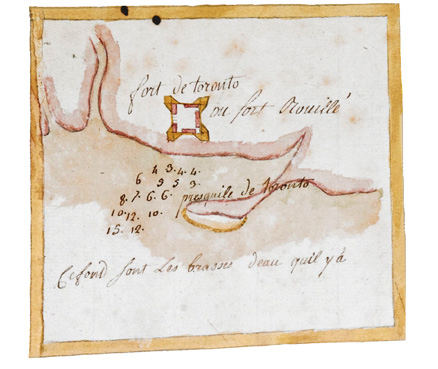 fort de toronto
ou fort Rouillé
4 3. 4. 4.
6 5 5 9.
8. 7. 6. 6. presquile de toronto
10. 12. 10.
15. 12.
fond sont Les brasses deau quil y a